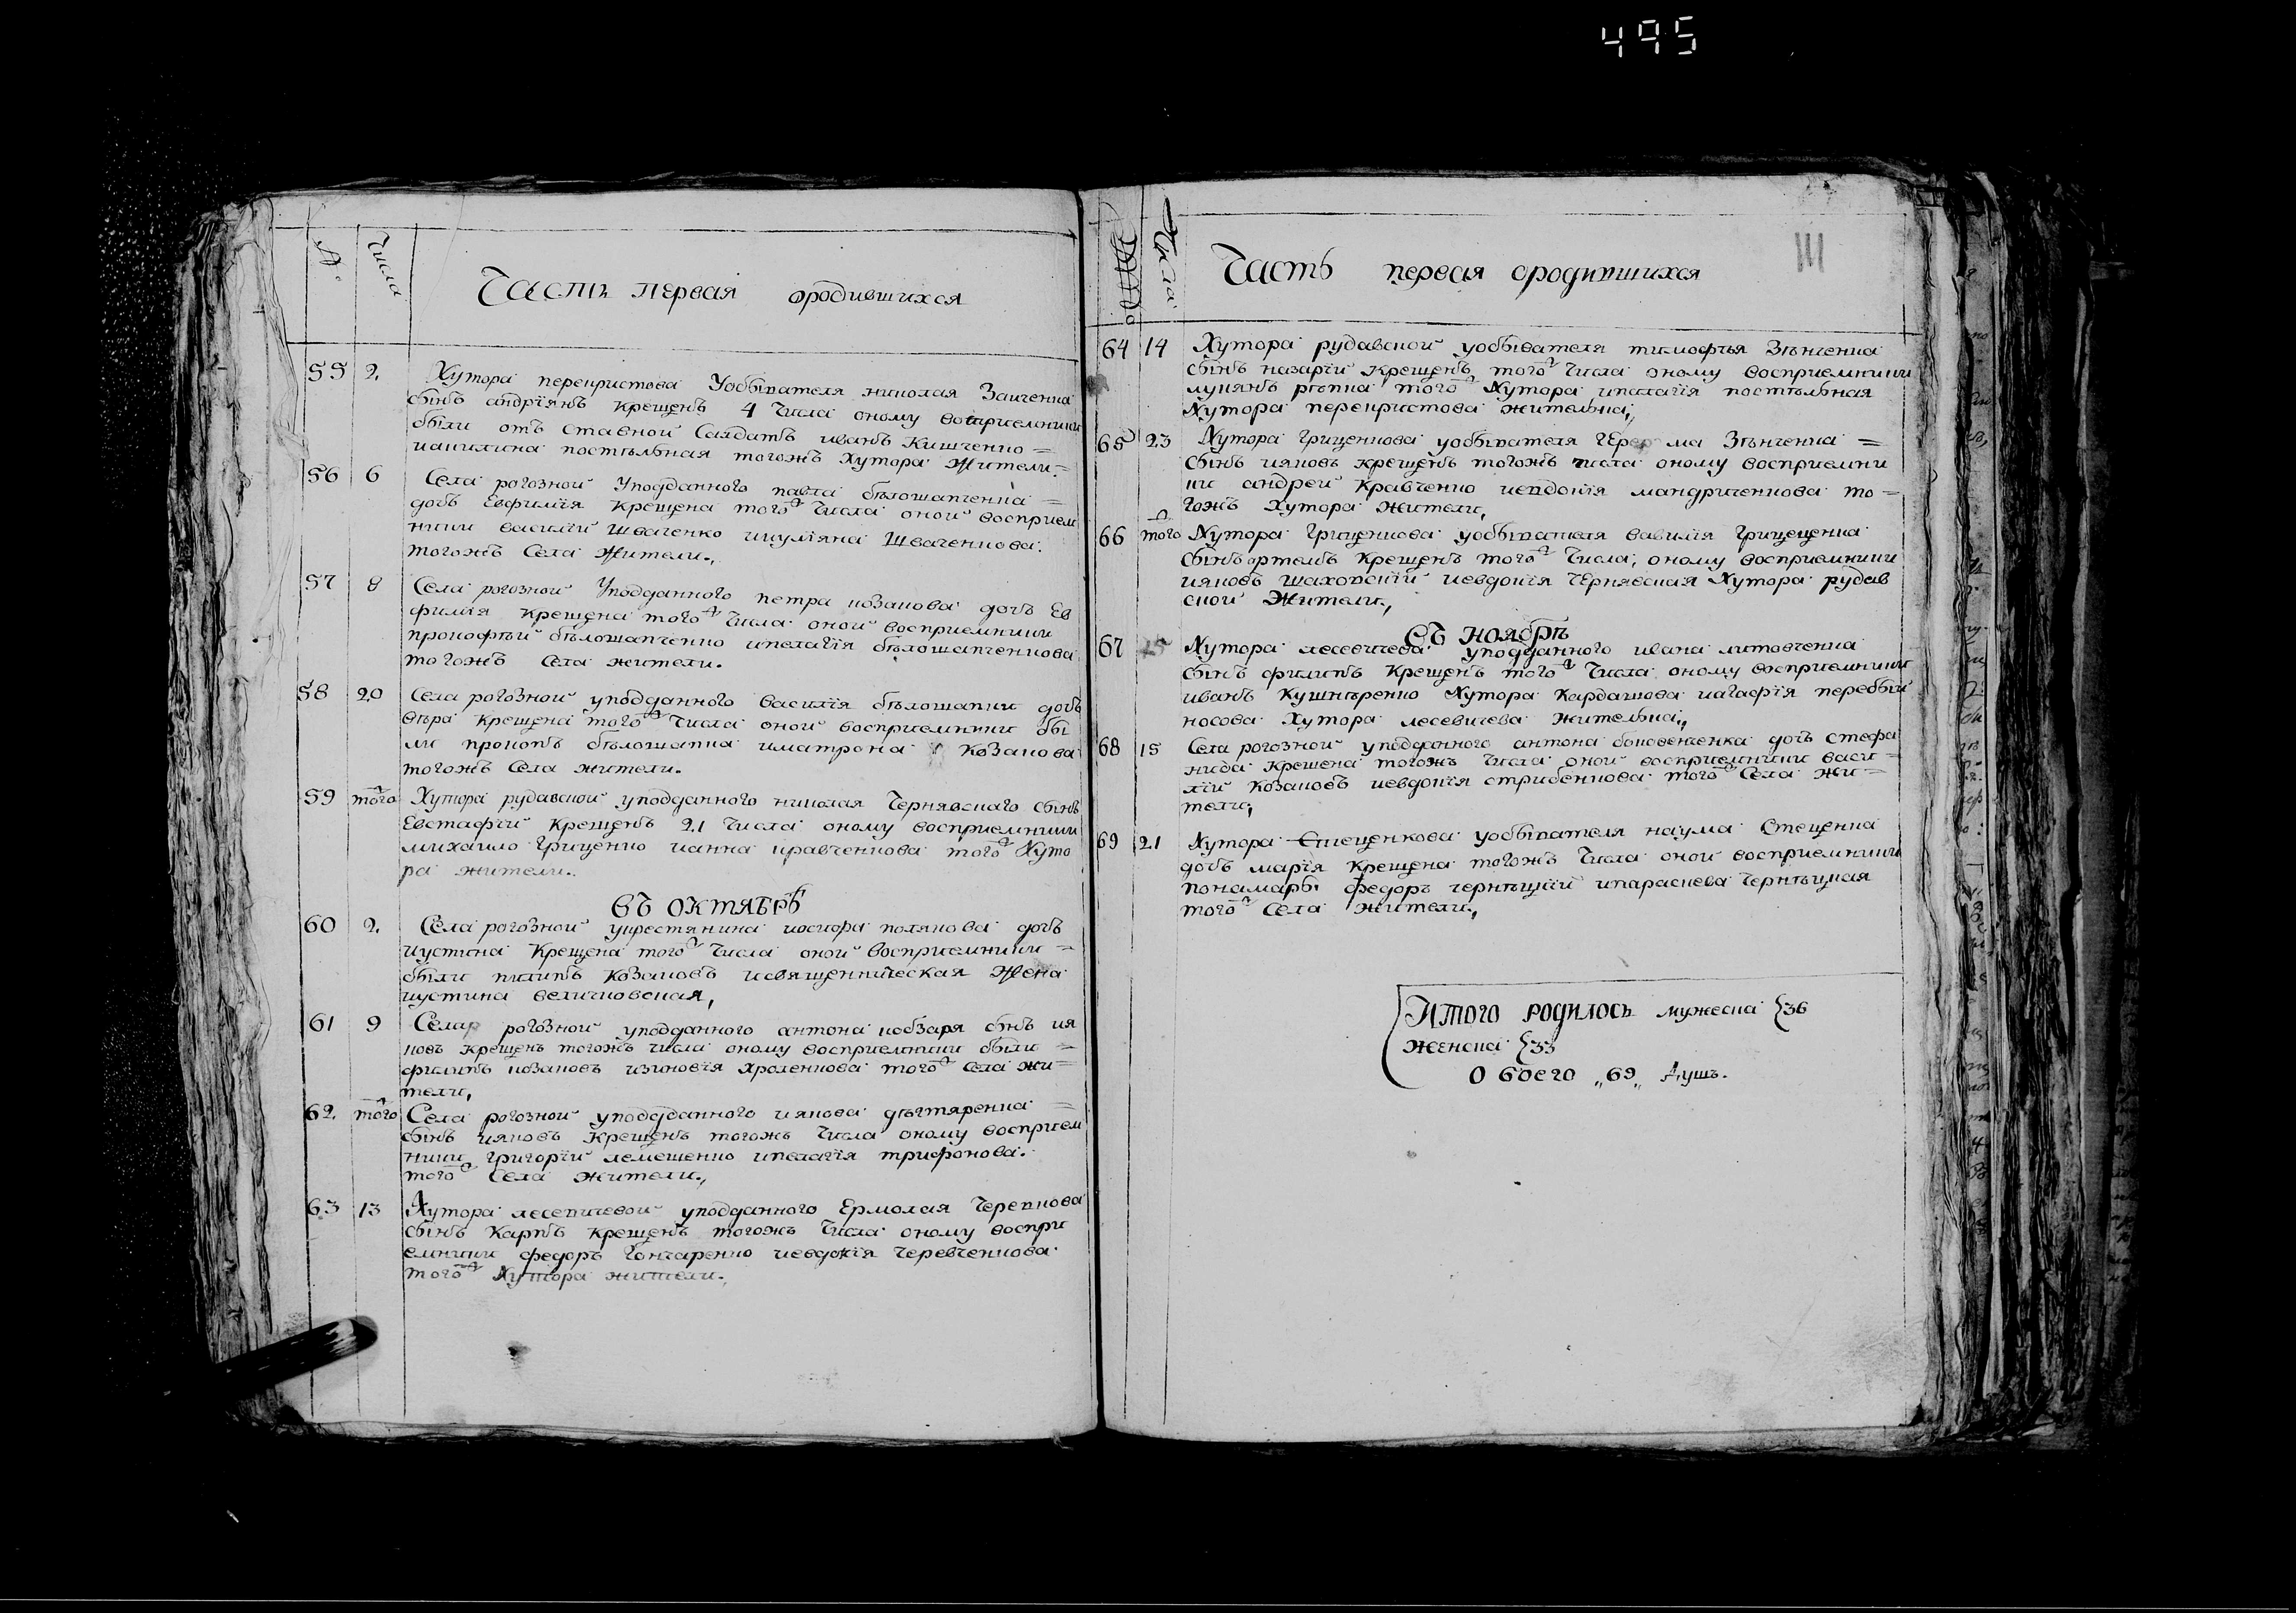 495
№.
Числа
Часть первая ородившихся
55 2. Хутора перекристова Уобывателя николая Заиченка
сынъ андріянъ крещенъ 4 Числа оному восприемники
были отъ ставной Салдатъ иванъ Кишченко =
иакилина постѣльная тогожъ Хутора Жители.=
56 6 Села рогозной Уподданного павла бѣлошапченка =
дочъ Евфимія Крещена того Числа оной восприем
ники василій Шваченко ииуліяна Шваченкова.
тогожъ Села Жители.,
57 8 Села рогозной Уподданного петра козакова дочъ Ев
фимія крещена того Числа оной восприемники
прокофѣй бѣлошапченко ипелагія бѣлошапченкова
тогожъ Села жители.
58 20 Села рогозной уподданного василія бѣлошапки дочъ
вѣра крещена того Числа оной восприемники бы
ли прокопъ бѣлошапка иматрона Козакова
тогожъ Села жители.
59 того Хутора рудавской уподданного николая Чернявскаго сынъ
Евстафій Крещенъ 21 Числа оному восприемники
михайло Гриценко ианна кравченкова того Хуто
ра жители.
въ октябрѣ
60 2. Села рогозной укрестянина иосифа полякова дочъ
иустина Крещена того Числа оной восприемники =
были пилипъ Козаковъ исвященническая Жена
иустина величковская,
61 9 Села рогозной уподданного антона кобзаря сынъ ия
ковъ крещенъ тогожъ числа оному восприемники были =
филипъ козаковъ изиновія хроленкова того Села жи=
тели,
62. того Села рогозной уподданного иякова дѣгтяренка =
сынъ ияковъ Крещенъ тогожъ Числа оному восприем
ники григорій лемешенко ипелагія трифонова.
того Села жители.,
63 13 Хутора лесевичевой уподданного Ермолая Черевкова
сынъ Карпъ крещенъ тогожъ Числа оному воспри
емники федоръ Гончаренко иевдокія Черевченкова
того Хутора жители.,
Числа
Часть первая ородившихся
III
64 14 Хутора рудавской уобывателя тимофѣя Зѣнченка
сынъ назарій крещенъ того Числа оному восприемники
лукянъ рѣпка того Хутора ипелагія постѣльная
Хутора перекристова жителька,
65 23 Хутора Гриценкова уобывателя Гера ма Зѣнченка =
сынъ ияковъ крещенъ тогожъ числа оному восприемни
ки андрей Кравченко иевдокія мандриченкова то=
гожъ Хутора жители,
66 того Хутора Гриценкова уобывателя вавилія Грицценка
сынъ артемъ Крещенъ того Числа, оному восприемники
ияковъ Шаховскій иевдокія Чернявская Хутора рудав
ской Жители.,
въ ноябрѣ
67 15 Хутора лесевичева уподданного ивана литовченка
сынъ филипъ Крещенъ того Числа оному восприемники
иванъ Кушнѣренко Хутора Кардашова иагафія перебый
носова Хутора лесевичева жителька.,
68 15 Села рогозной уподданного антона боковенченка дочъ стефа
нида Крещена тогожъ Числа оной восприемники васи=
лій Козаковъ иевдокія стрибенкова того Села жи=
тели,
69 21 Хутора Стеценкова уобывателя наума Стеценка
дочъ марія Крещена тогожъ Числа оной восприемники
понамаръ федоръ чернѣцкій ипараскева чернѣцкая
того Села жители.,
Итого родилось мужеска {36
женска {33
Обоего „69„ Душъ.